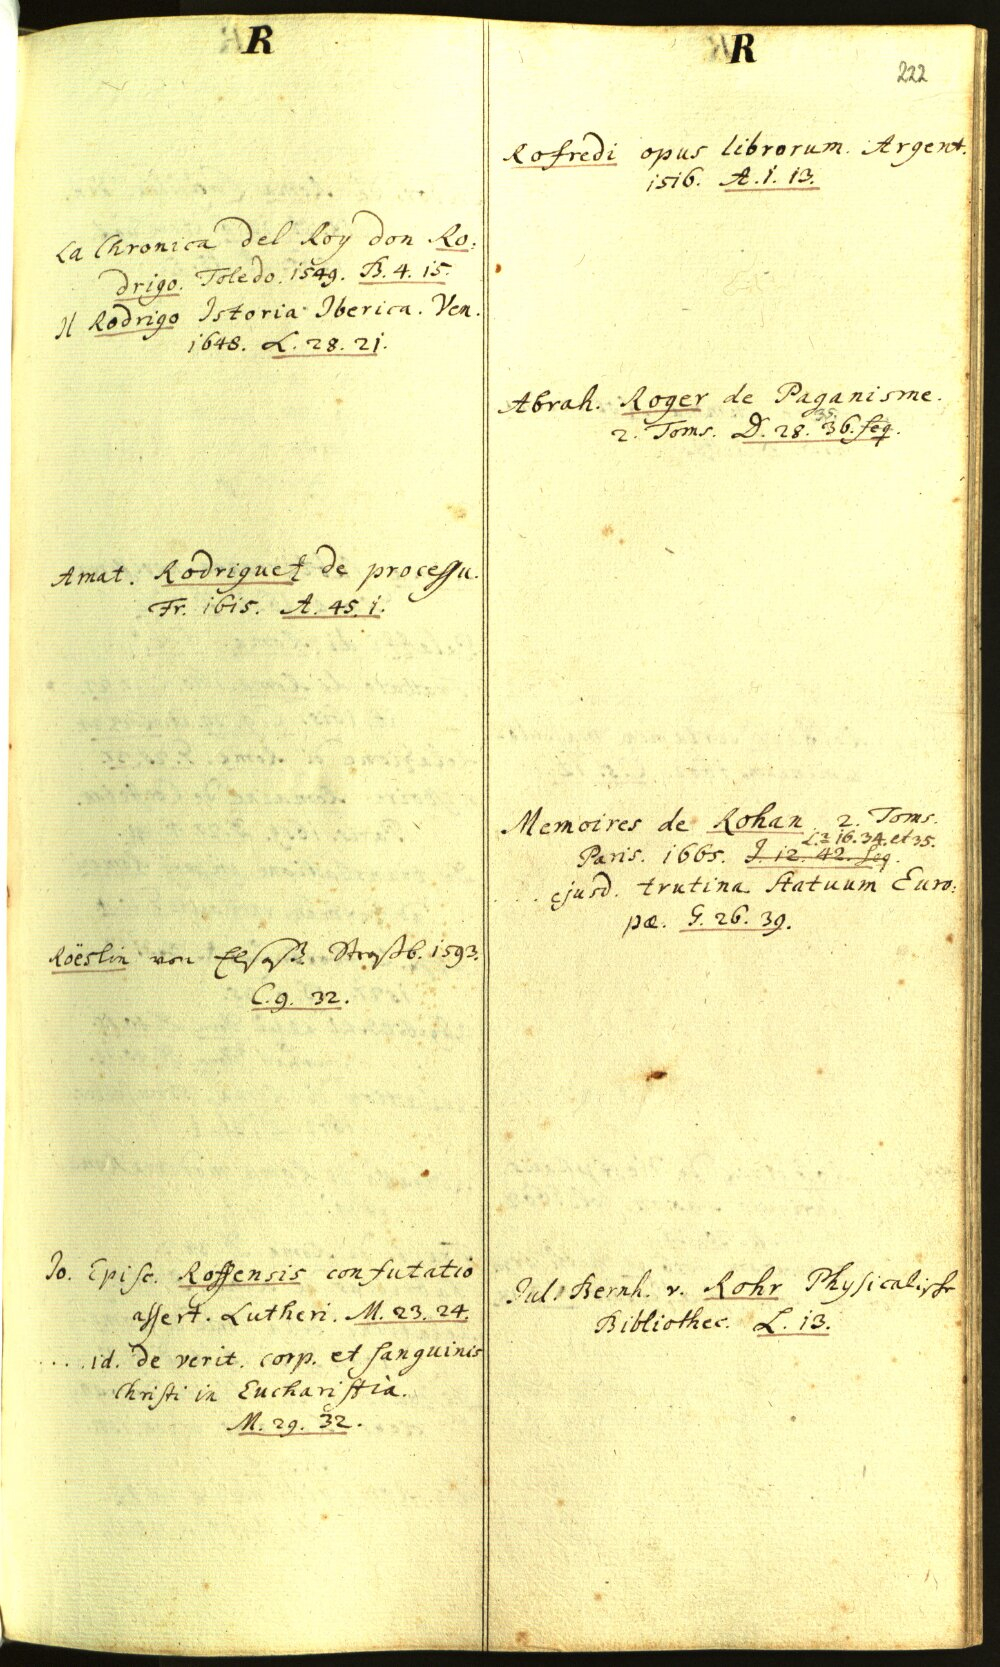 R
La Chronica del Roy don Ro:
drigo. Toledo. 1549. B. 4. 15.
Il Rodrigo Istoria Iberica. Ven.
1648. L. 28. 21.
Amat. Rodriguez de processu.
Fr. 1615. A. 45. 1.
Roëslin von Elsaß Straßb. 1593.
C. 9. 32.
Jo. Episc. Roffensis confutatio
assert. Lutheri. M. 23. 24.
....id. de verit. corp. et sanguinis
Christi in Eucharistia.
M. 29. 32.
R
222
Rofredi opus librorum. Argent.
1516. A. 1. 13.
Abrah. Roger de Paganisme.
35.
2. Toms. D. 28. 36. seq.
Memoires de Rohan 2. Toms.
L. 2 16. 34. et 35.
Paris. 1665. J. 12. 42. seq.
... ejusd. trutina Statuum Euro:
pæ. G. 26. 39.
Jul. Bernh. v. Rohr Physicalische
Bibliothec. L. 13.